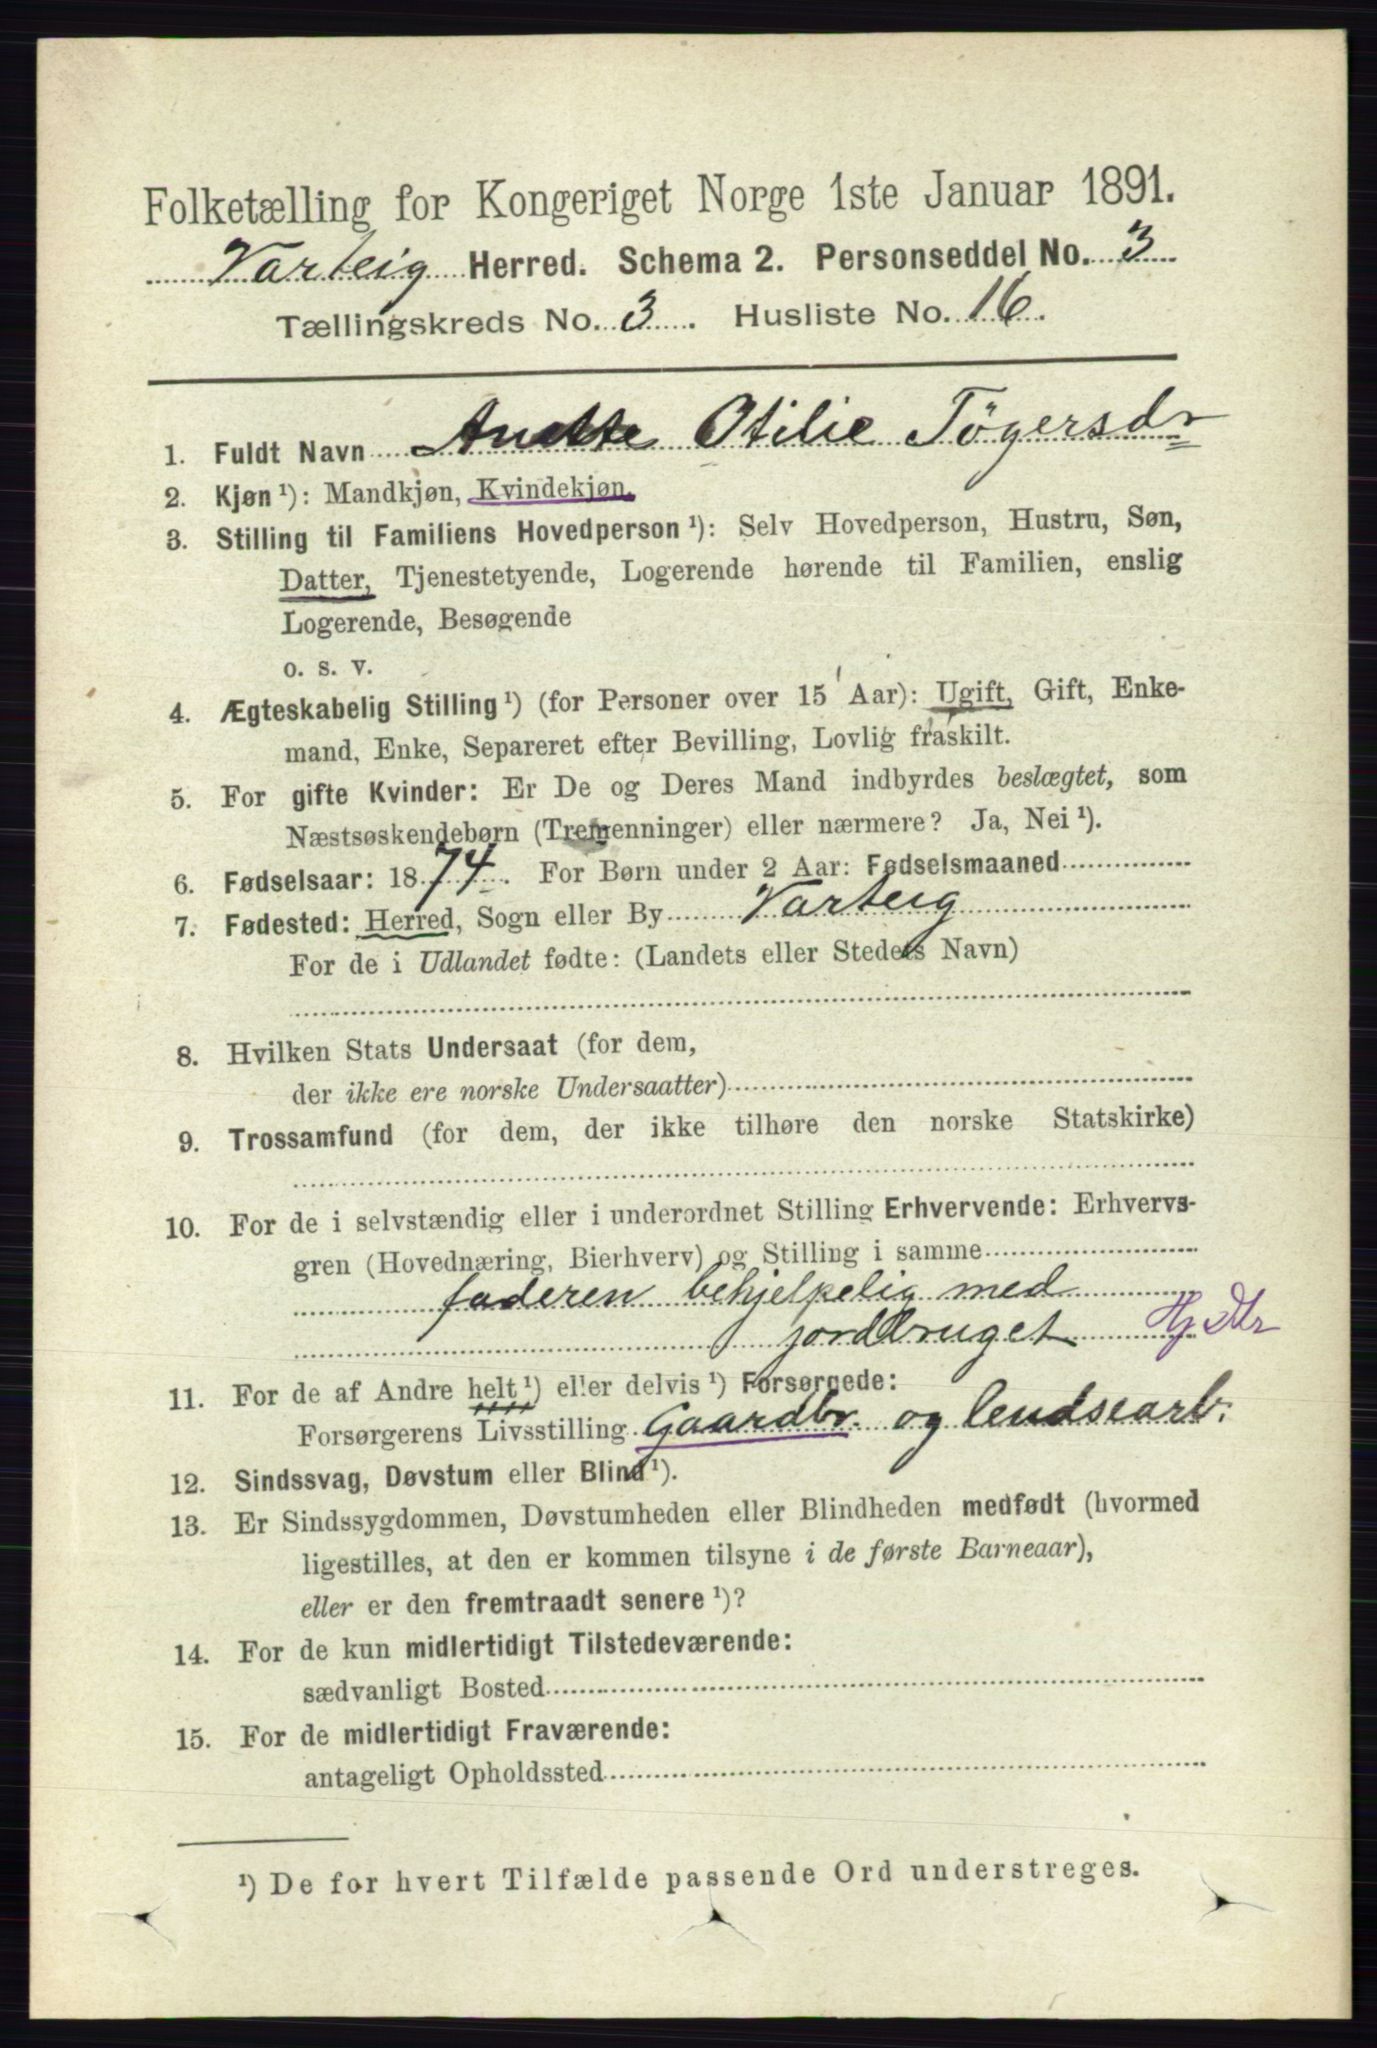 Folketælling for Kongeriget Norge 1ste Januar 1891.
Varteig Herred. Schema 2. Personseddel No. 3
Tællingskreds No. 3. Husliste No. 16.
1. Fuldt Navn Anette Otilie Tögersdr
2. Kjøn ¹): Mandkjøn, Kvindekjøn.
3. Stilling til Familiens Hovedperson ¹): Selv Hovedperson, Hustru, Søn,
Datter, Tjenestetyende, Logerende hørende til Familien, enslig
Logerende, Besøgende
o. s. v.
4. Ægteskabelig Stilling ¹) (for Personer over 15 Aar): Ugift, Gift, Enke-
mand, Enke, Separeret efter Bevilling, Lovlig fraskilt.
5. For gifte Kvinder: Er De og Deres Mand indbyrdes beslægtet, som
Næstsøskendebørn (Tremenninger) eller nærmere? Ja, Nei ¹).
6. Fødselsaar: 1874. For Børn under 2 Aar: Fødselsmaaned
7. Fødested: Herred, Sogn eller By Varteig
For de i Udlandet fødte: (Landets eller Stedets Navn)
8. Hvilken Stats Undersaat (for dem,
der ikke ere norske Undersaatter)
9. Trossamfund (for dem, der ikke tilhøre den norske Statskirke)
10. For de i selvstændig eller i underordnet Stilling Erhvervende: Erhvervs-
gren (Hovednæring, Bierhverv) og Stilling i samme
faderen behjelpelig med
jordbruget Hj Dtr
11. For de af Andre helt ¹) eller delvis ¹) Forsørgede:
Forsørgerens Livsstilling Gaardbr. og lendsearb.
12. Sindssvag, Døvstum eller Blind ¹).
13. Er Sindssygdommen, Døvstumheden eller Blindheden medfødt (hvormed
ligestilles, at den er kommen tilsyne i de første Barneaar),
eller er den fremtraadt senere ¹)?
14. For de kun midlertidigt Tilstedeværende:
sædvanligt Bosted
15. For de midlertidigt Fraværende:
antageligt Opholdssted
¹) De for hvert Tilfælde passende Ord understreges.